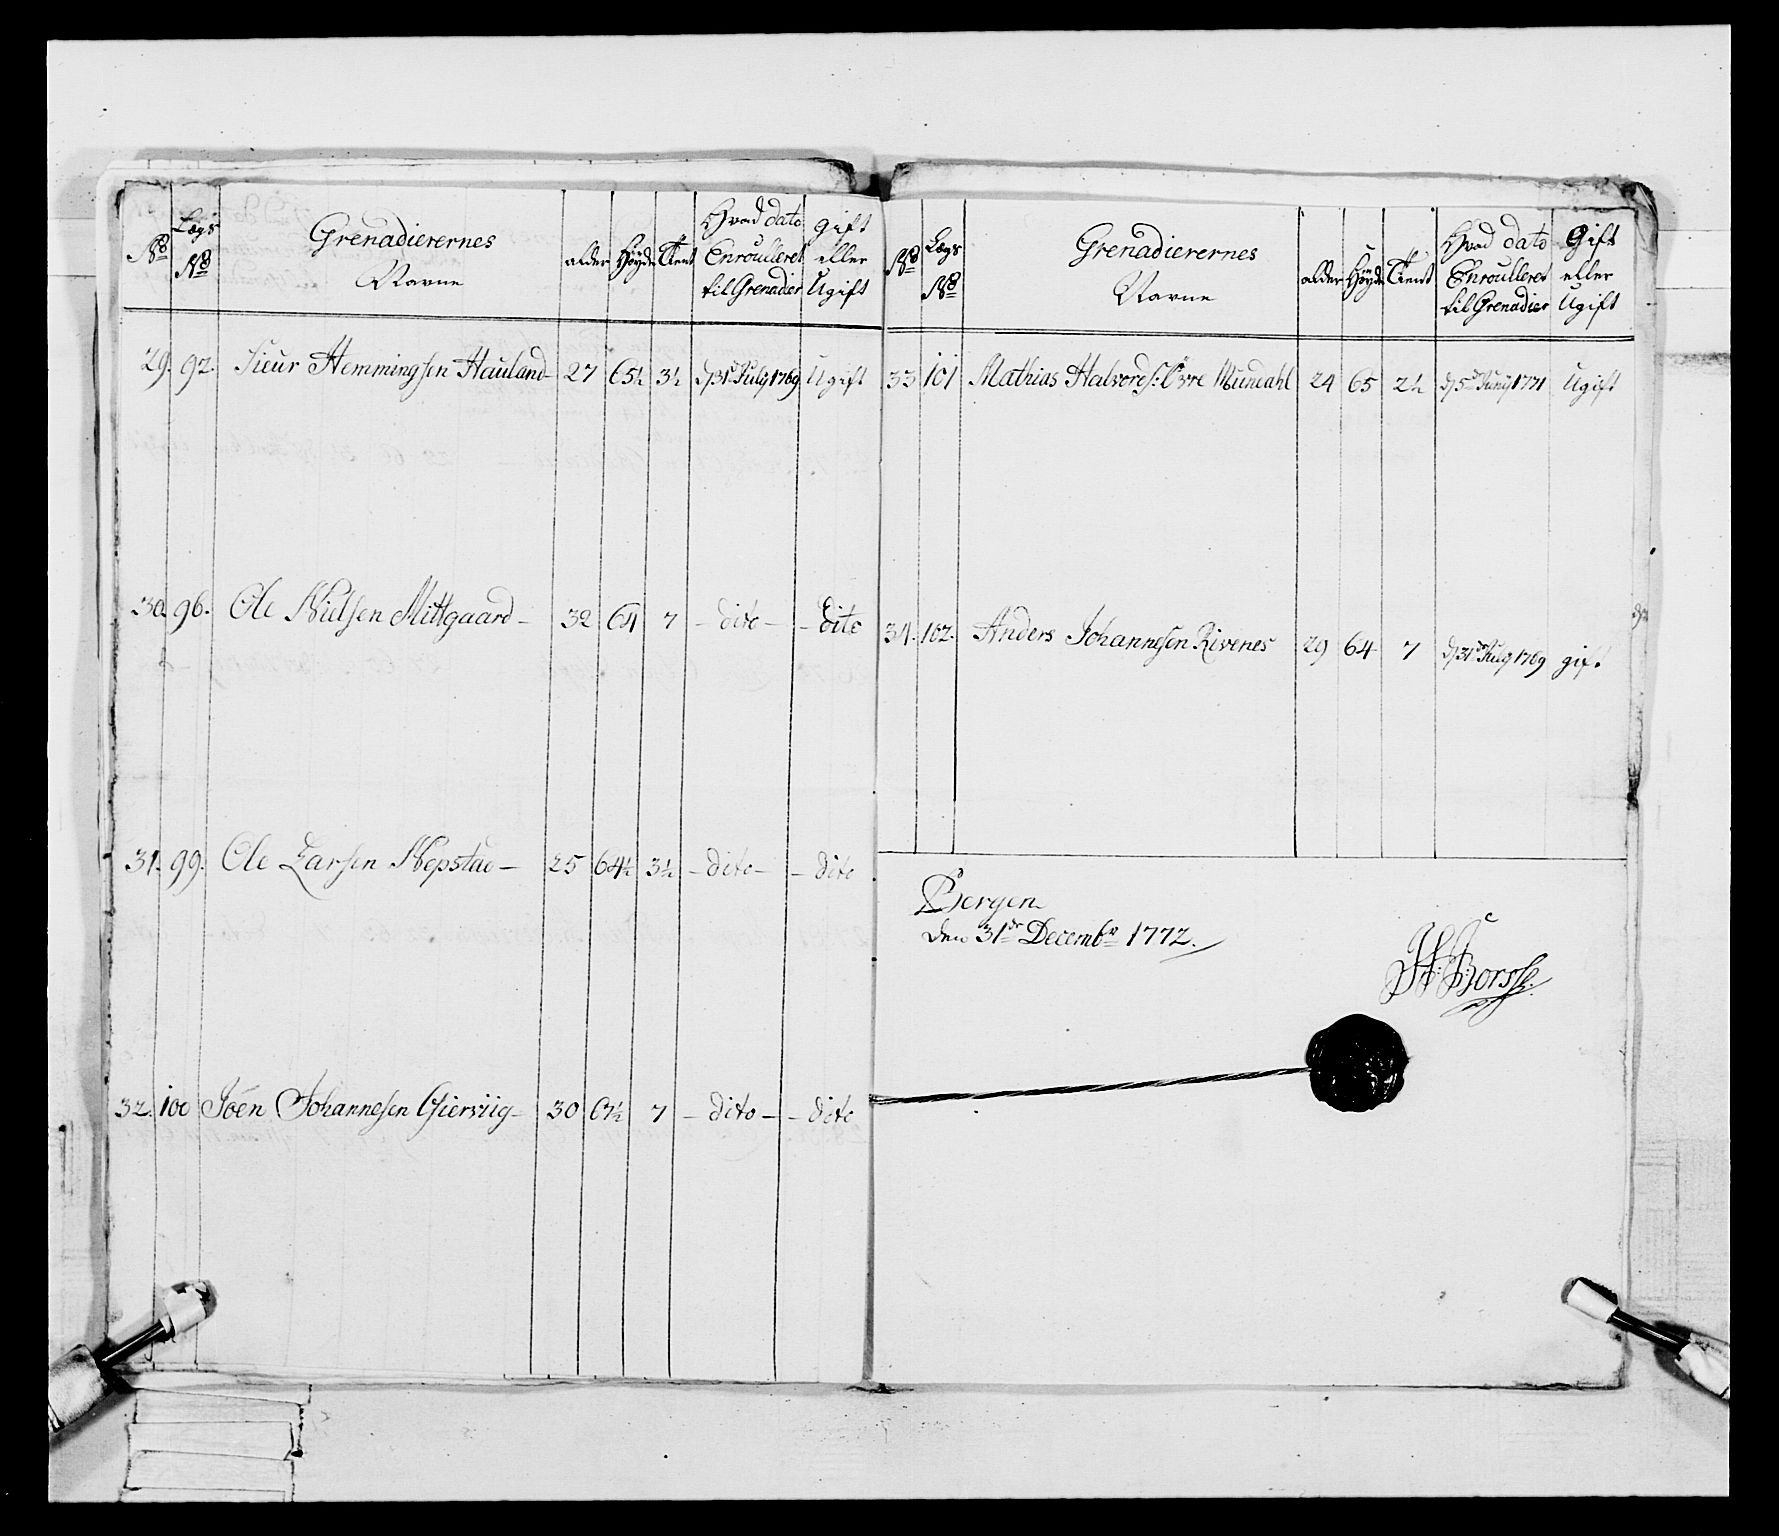 No
Lægs
No
Grenadierernes
Navne
alder
Höyde
Tient
Hvad dato
Enroulleret
til Grenadier
gift
eller
Ugift
29. 92. Sieur Hemmingsen Hauland 27 65½ 3½ d 31te July 1769 Ugift
30. 96. Ole Nielsen Mittgaard - 32 64 7 - dito - - dito
31. 99. Ole Larsen Nepstad - 25 64½ 3½ - dito - - dito
32. 100 Joen Johannesen Gierviig - 30 67½ 7 - dito - - dito
No
Lægs
No
Grenadierernes
Navne
alder
Höyde
Tient
Hvad dato
Enroulleret
til Grenadier
Gift
eller
Ugift
33 101 Mathias Halvords: Övre Mundahl 24 65 2½ d 5te Junij 1771 Ugift
34. 102. Anders Johannesen Rivenes 29 64 7 d 31te July 1769 gift
Bergen
den 31te Decembr 1772.